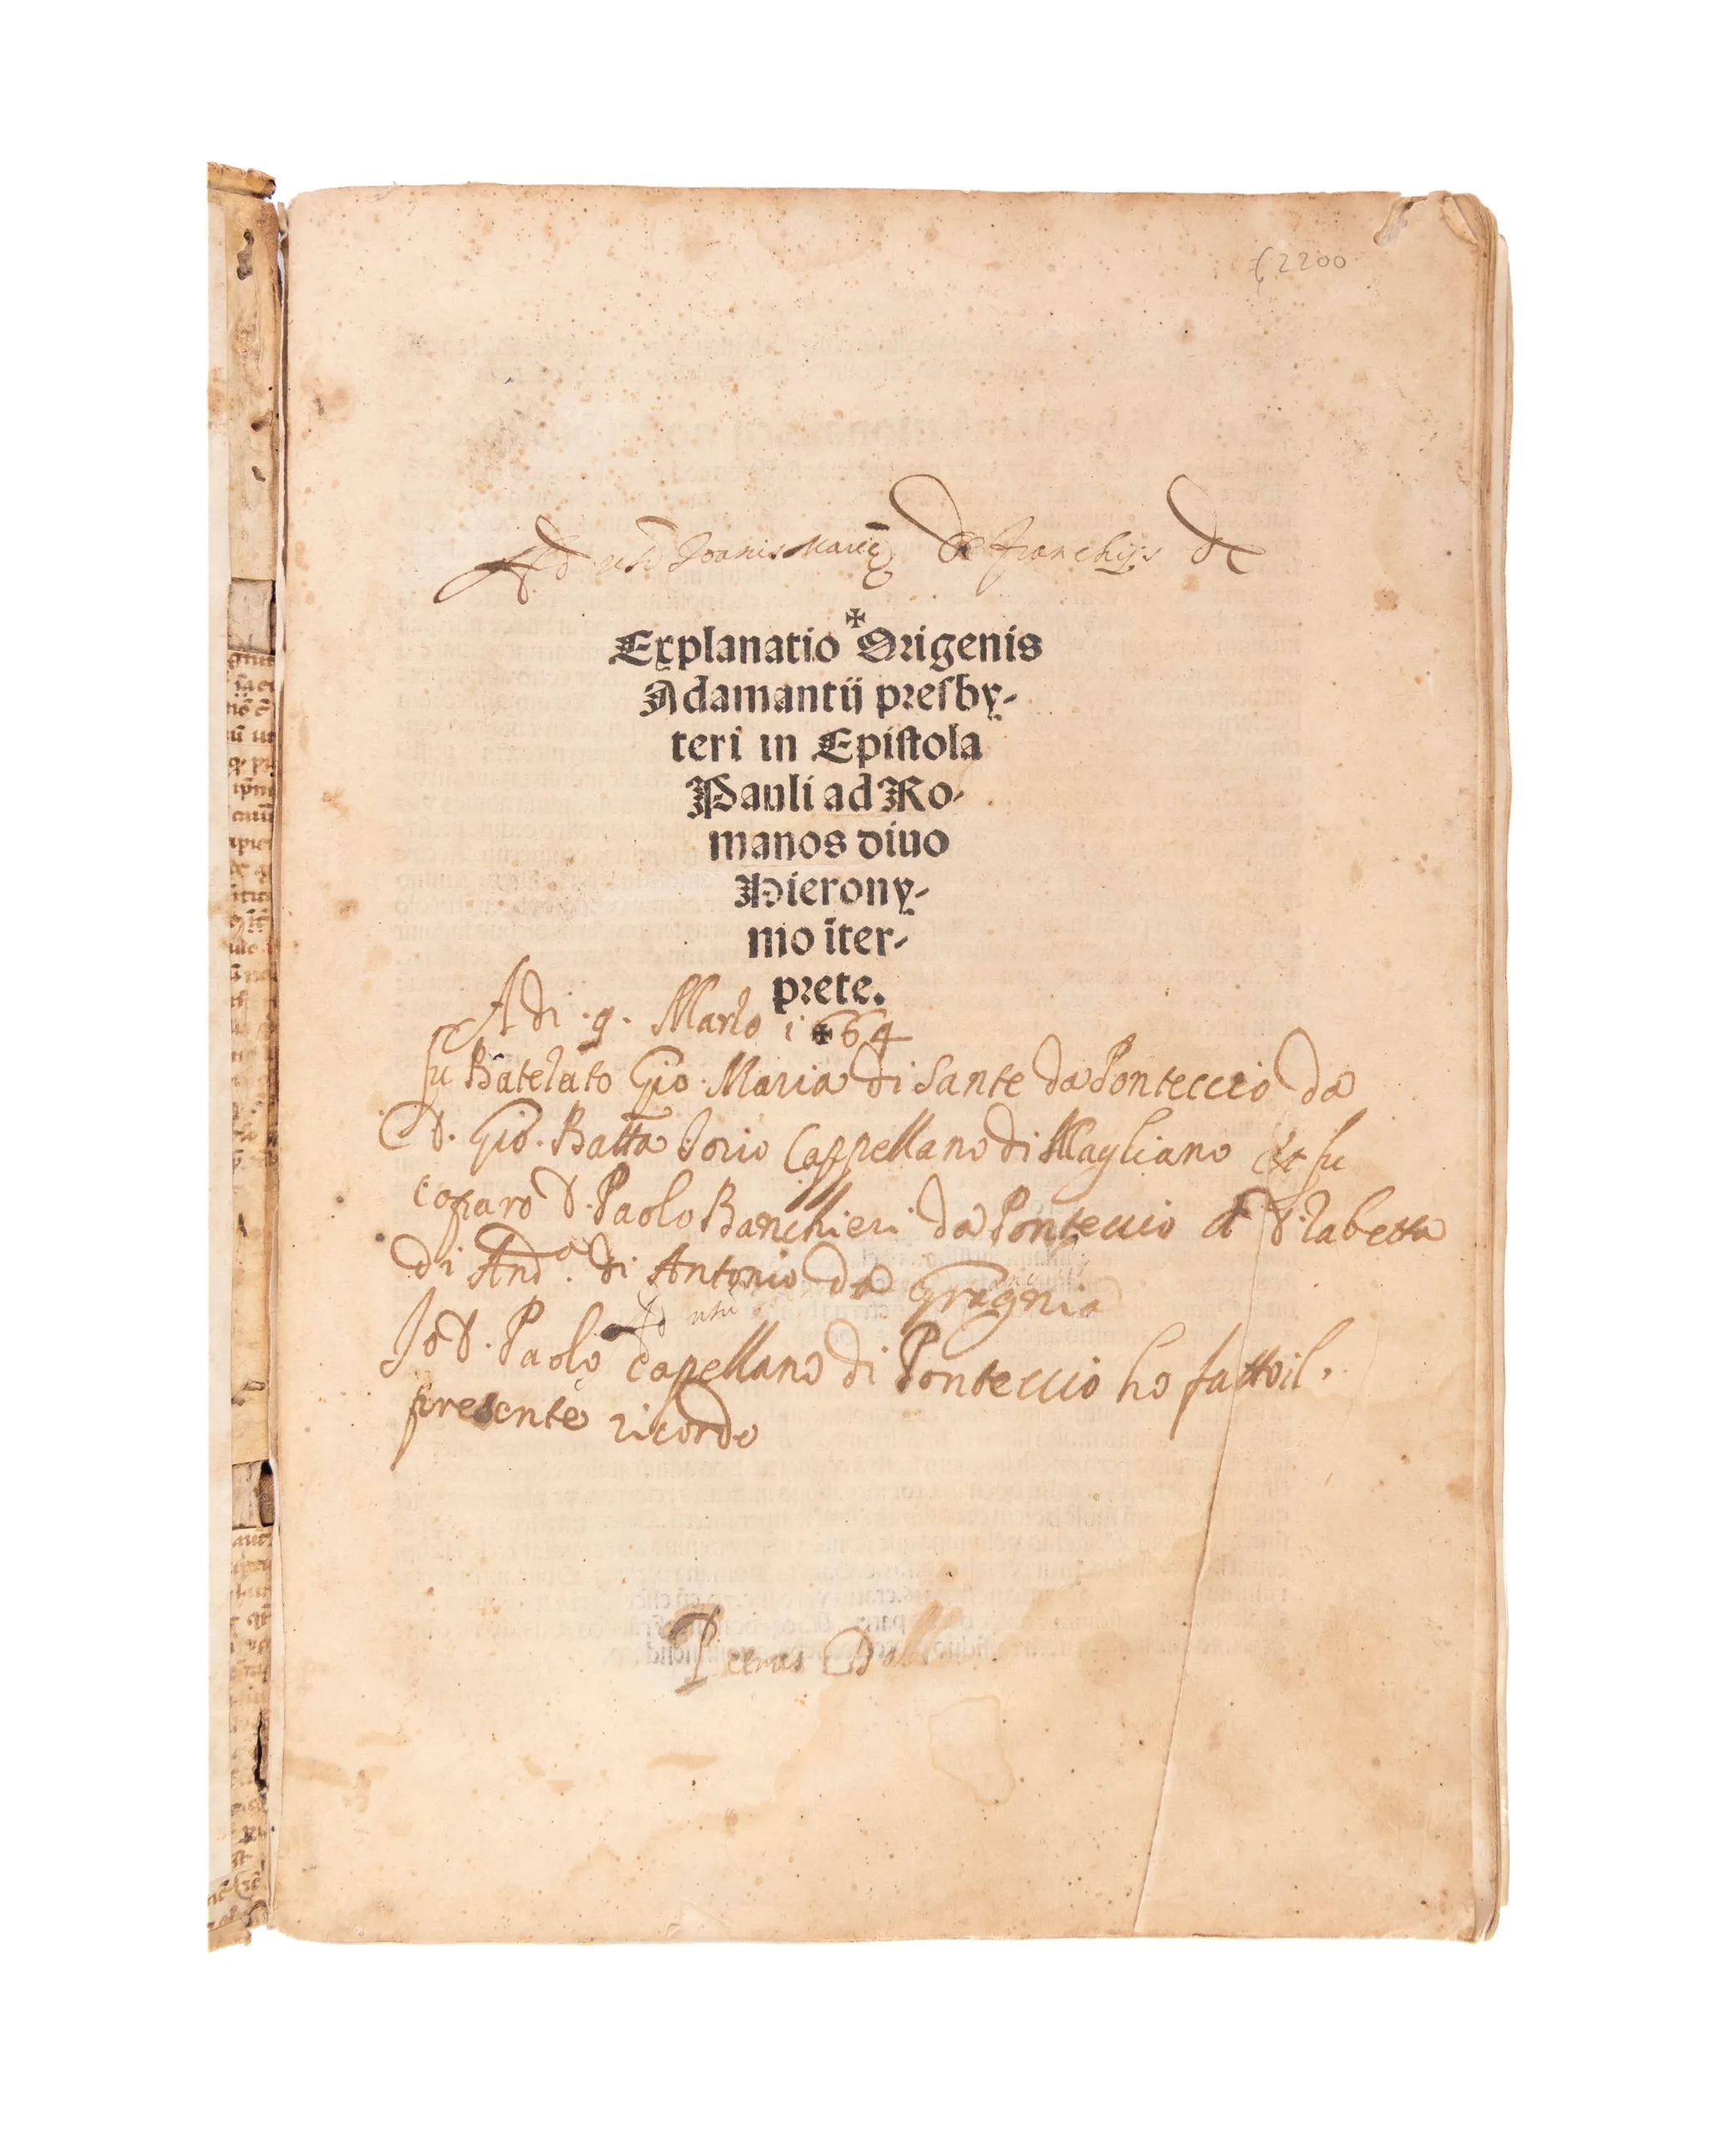 (2200
Ad usū Joannis Marię De Franchijs &c
✠
Explanatio Origenis
Adamantij presby-
teri in Epistola
Pauli ad Ro-
manos diuo
Hierony-
mo īter-
prete.
Adi .9. Marzo 1664
fu Batelato Gio Maria di Sante da Ponteccio da
D. Gio. Batta Cappellano di Magliano et fu
D. Paolo Banchieri da Ponteccio
di And.a di Antonio da Gragnia
Ad usu
Io D. Paolo Capellano di Ponteccio ho fatto il
presente ricordo
Petrus